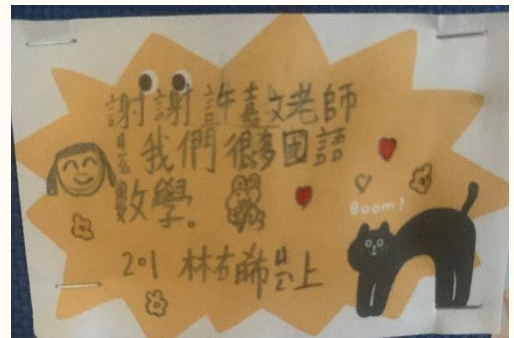 謝謝許嘉文老師
我們很多國語
數學。
Boom!
201 林右 上